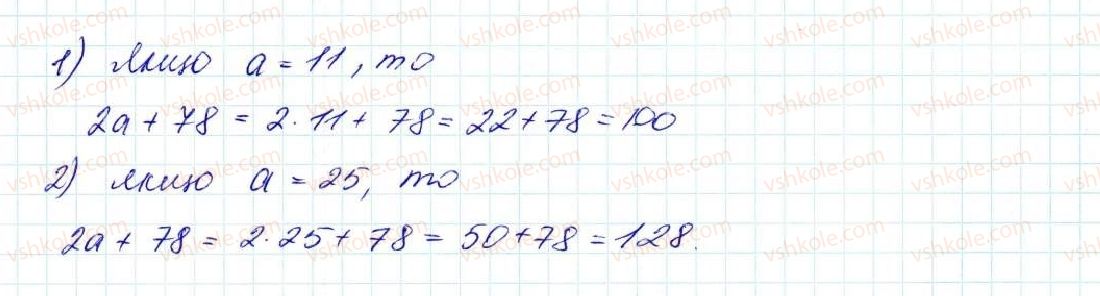 1) якщо a = 11, то
2a + 78 = 2·11 + 78 = 22 + 78 = 100
2) якщо a = 25, то
2a + 78 = 2·25 + 78 = 50 + 78 = 128.